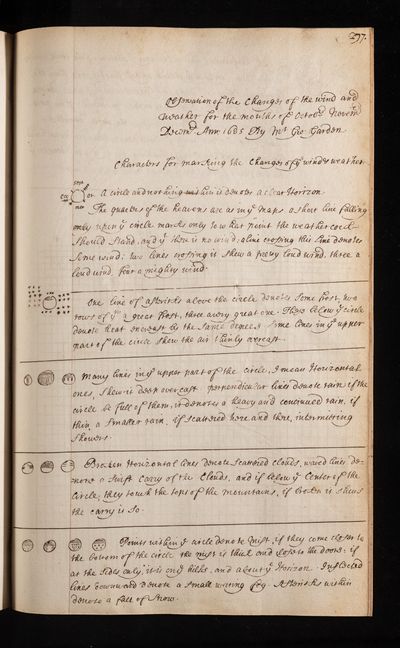 297.
Observation of the Changes of the wind and
weather for the months of Octobr Novem
Decem Ann: 1685 By Mr Geo: Garden
Characters for marking the Changes of ye wind & weather
A circle and nothing within is denotes a clear Horizon
The quarters of the heavens are as in ye Maps a short line falling
only upon ye circle marks only to what point the weather cock
should stand, and yt there is no wind; a line crossing this line denotes
some wind; two lines crossing it shew a pretty loud wind, three a
loud wind, four a mighty wind.
One line of asterisks above the circle denotes some frost, two
rows of ym a great frost, three a very great one. Those below ye circle
denote heat increast by the same degrees. Some lines in ye upper
part of the circle shew the air thinly overcast.
Many lines in ye upper part of the circle, I mean Horizontal
ones, shew it deep overcast. perpendicular lines denote rain if the
circle be full of them, it denotes a heavy and continued rain. if
thin a smaller rain. if scattered here and there, intermitting
showers.
Broken Horizontal lines denote scattered clouds, waved lines de-
note a swift carry of the Clouds, and if below ye Center of the
Circle, they touch the tops of the mountains, if broken it shews
the carry is so.
Points within ye circle denote mist, if they come closs to
the bottom of the circle the mist is thick and closs to the doors: if
at the sides only, it is on ye hills, and about ye Horizon. Inflected
lines downward denote a small wetting fog. Asterisks within
denote a fall of snow.